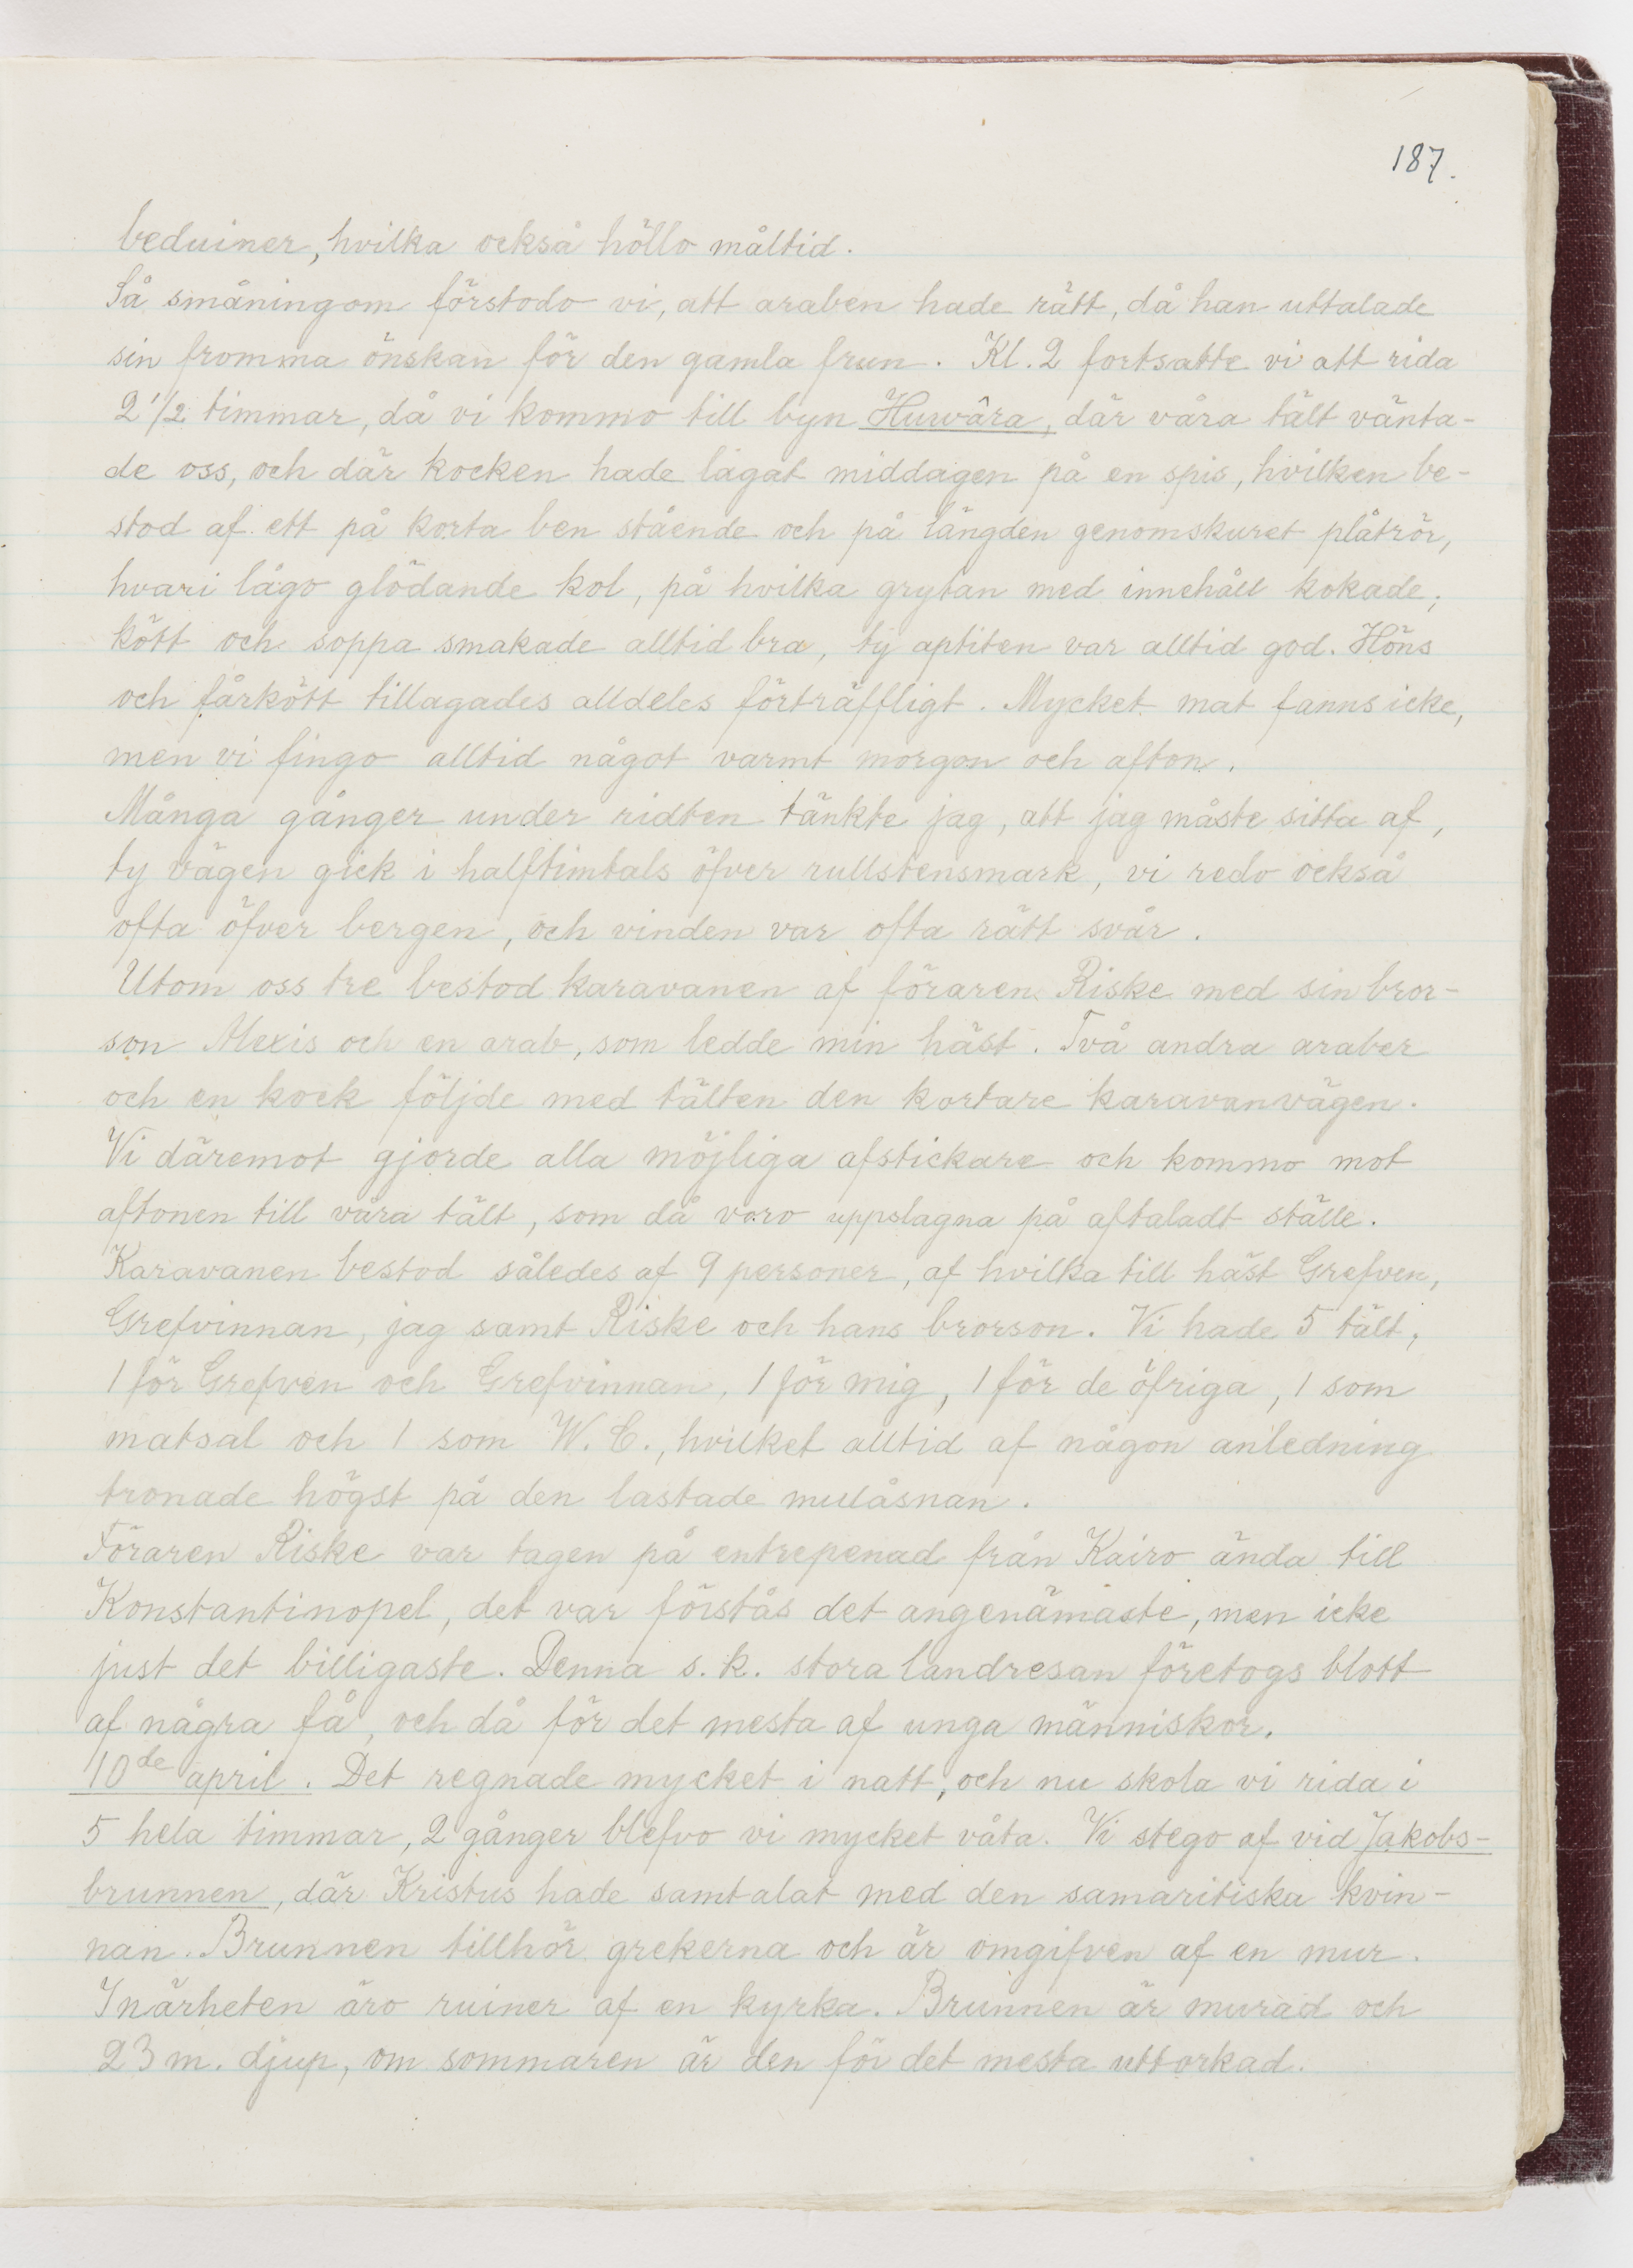 187.
beduiner, hvilka också höllo måltid.
Så småningom förstodo vi, att araben hade rätt, då han uttalade
sin fromma önskan för den gamla frun. Kl. 2 fortsatte vi att rida
2 1/2 timmar, då vi kommo till byn Huwâra, där våra tält vänta-
de oss, och där kocken hade lagat middagen på en spis, hvilken be-
stod af ett på korta ben stående och på längden genomskuret plåtrör,
hvari lågo glödande kol, på hvilka grytan med innehåll kokade;
kött och soppa smakade alltid bra, ty aptiten var alltid god. Höns
och fårkött tillagades alldeles förträffligt. Mycket mat fanns icke,
men vi fingo alltid något varmt morgon och afton.
Många gånger under ridten tänkte jag, att jag måste sitta af,
ty vägen gick i halftimtals öfver rullstensmark, vi redo också
ofta öfver bergen, och vinden var ofta rätt svår.
Utom oss tre bestod karavanen af föraren Riske med sin bror-
son Alexis och en arab, som ledde min häst. Två andra araber
och en kock följde med tälten den kortare karavanvägen.
Vi däremot gjorde alla möjliga afstickare och kommo mot
aftonen till våra tält, som då voro uppslagna på aftaladt ställe.
Karavanen bestod således af 9 personer, af hvilka till häst Grefven,
Grefvinnan, jag samt Riske och hans brorson. Vi hade 5 tält,
1 för Grefven och Grefvinnan, 1 för mig, 1 för de öfriga, 1 som
matsal och 1 som W. C., hvilket alltid af någon anledning
tronade högst på den lastade mulåsnan.
Föraren Riske var tagen på entrepenad från Kairo ända till
Konstantinopel, det var förstås det angenämaste, men icke
just det billigaste. Denna s. k. stora landresan företogs blott
af några få, och då för det mesta af unga människor.
10de april. Det regnade mycket i natt, och nu skola vi rida i
5 hela timmar, 2 gånger blefvo vi mycket våta. Vi stego af vid Jakobs-
brunnen, där Kristus hade samtalat med den samaritiska kvin-
nan. Brunnen tillhör grekerna och är omgifven af en mur.
I närheten äro ruiner af en kyrka. Brunnen är murad och
23 m. djup, om sommaren är den för det mesta uttorkad.